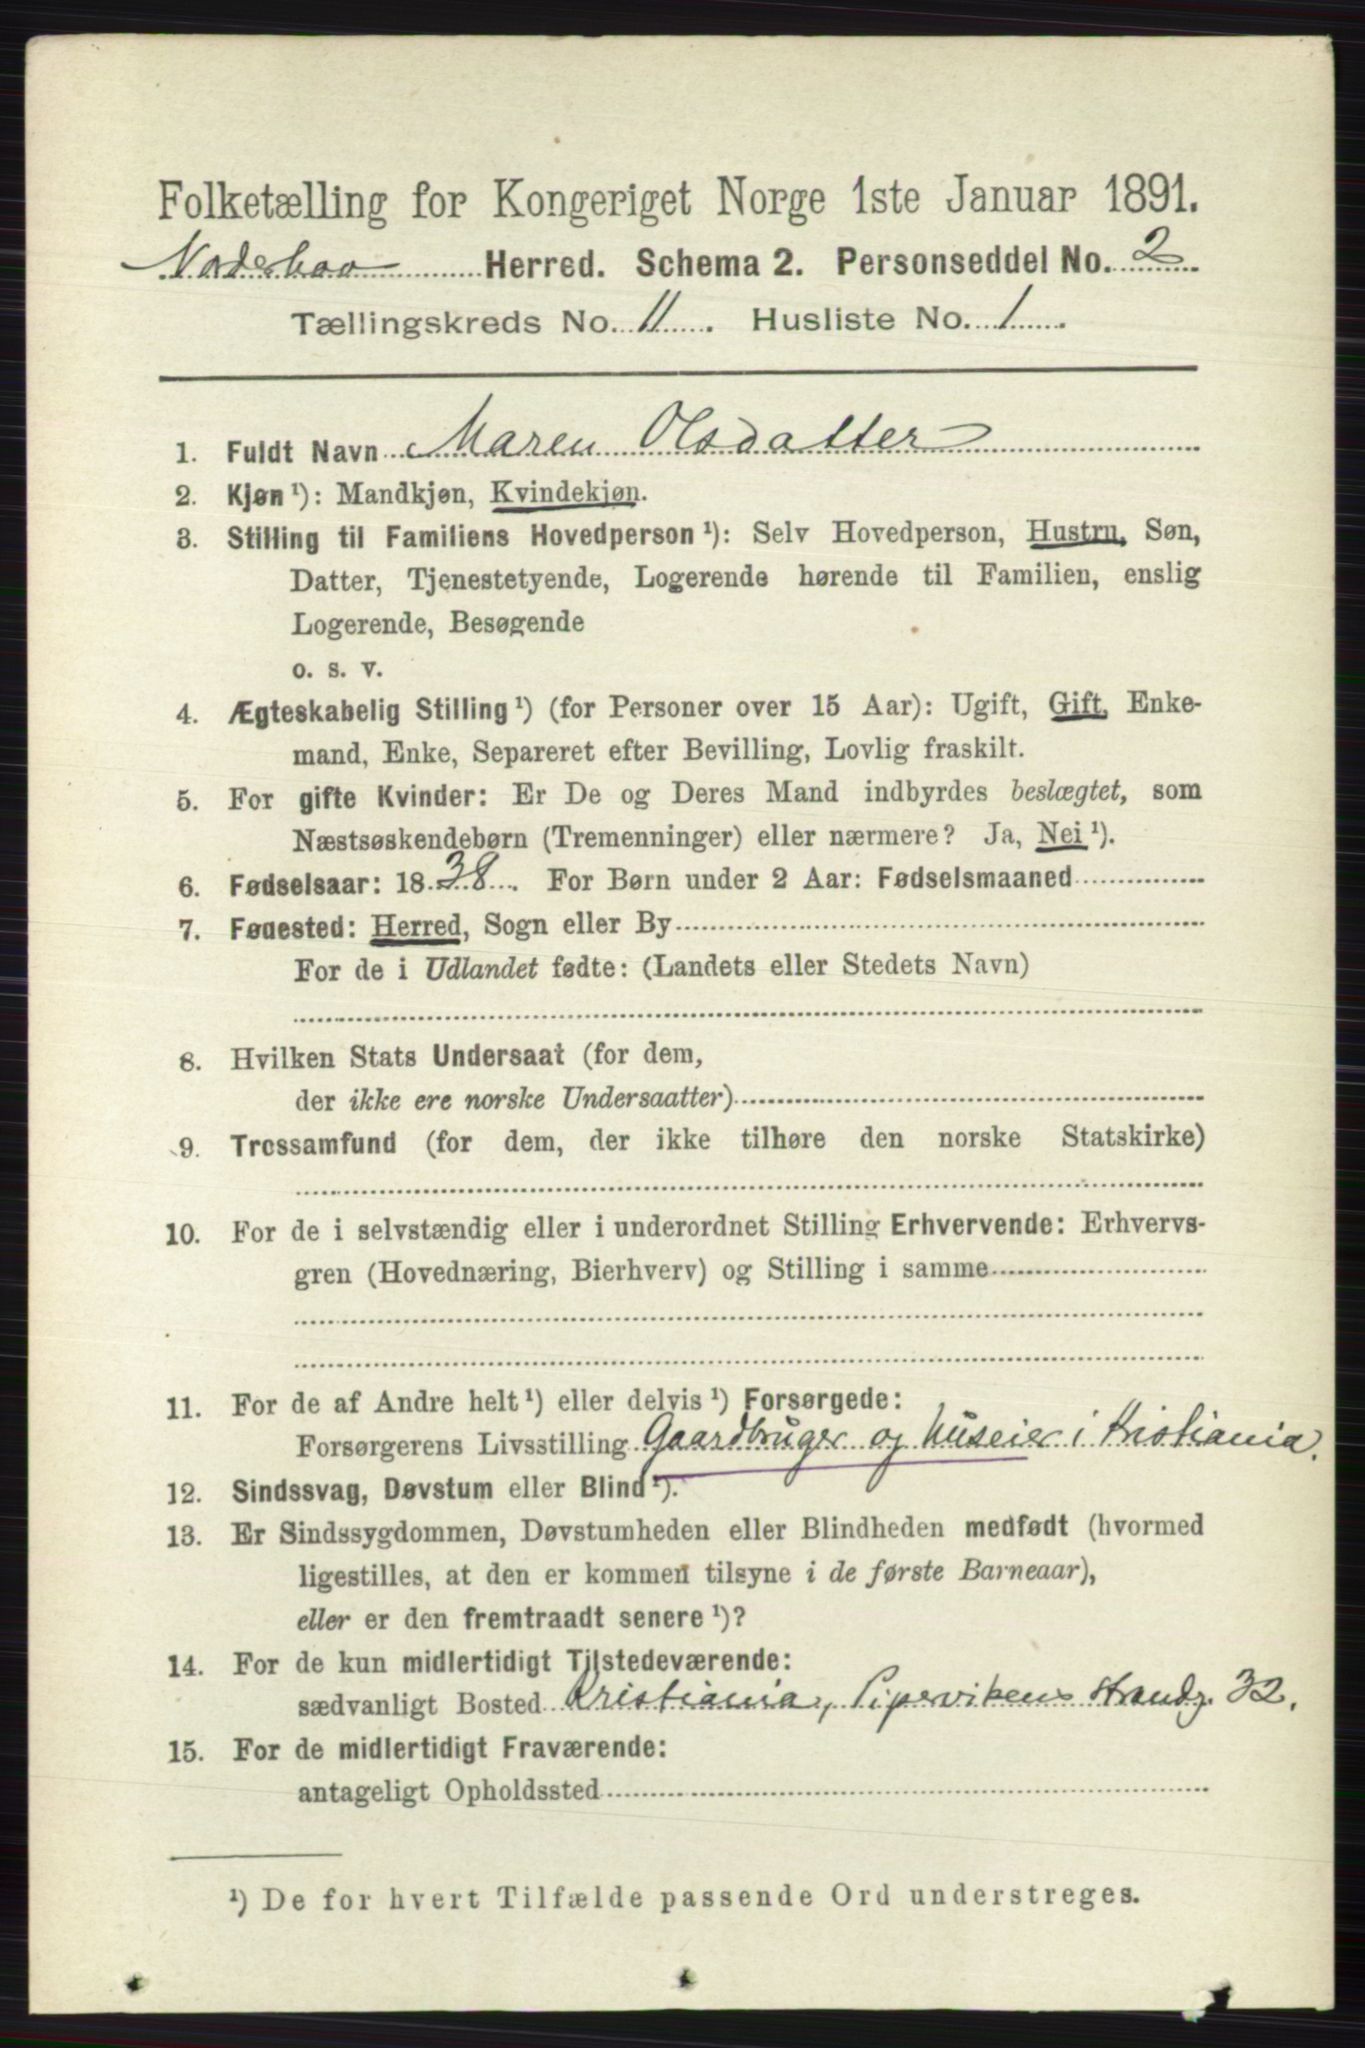 Folketælling for Kongeriget Norge 1ste Januar 1891.
Norderhov Herred. Schema 2. Personseddel No. 2
Tællingskreds No. 11. Husliste No. 1.
1. Fuldt Navn Maren Olsdatter
2. Kjøn ¹): Mandkjøn, Kvindekjøn.
3. Stilling til Familiens Hovedperson ¹): Selv Hovedperson, Hustru, Søn,
Datter, Tjenestetyende, Logerende hørende til Familien, enslig
Logerende, Besøgende
o. s. v.
4. Ægteskabelig Stilling ¹) (for Personer over 15 Aar): Ugift, Gift, Enke-
mand, Enke, Separeret efter Bevilling, Lovlig fraskilt.
5. For gifte Kvinder: Er De og Deres Mand indbyrdes beslægtet, som
Næstsøskendebørn (Tremenninger) eller nærmere? Ja, Nei ¹).
6. Fødselsaar: 1838. For Børn under 2 Aar: Fødselsmaaned
7. Fødested: Herred, Sogn eller By
For de i Udlandet fødte: (Landets eller Stedets Navn)
8. Hvilken Stats Undersaat (for dem,
der ikke ere norske Undersaatter)
9. Trossamfund (for dem, der ikke tilhøre den norske Statskirke)
10. For de i selvstændig eller i underordnet Stilling Erhvervende: Erhvervs-
gren (Hovednæring, Bierhverv) og Stilling i samme
11. For de af Andre helt ¹) eller delvis ¹) Forsørgede:
Forsørgerens Livsstilling Gaardbruger og huseier i Kristiania.
12. Sindssvag, Døvstum eller Blind ¹).
13. Er Sindssygdommen, Døvstumheden eller Blindheden medfødt (hvormed
ligestilles, at den er kommen tilsyne i de første Barneaar),
eller er den fremtraadt senere ¹)?
14. For de kun midlertidigt Tilstedeværende:
sædvanligt Bosted Kristiania, Pipervikens Strandg. 32.
15. For de midlertidigt Fraværende:
antageligt Opholdssted
¹) De for hvert Tilfælde passende Ord understreges.